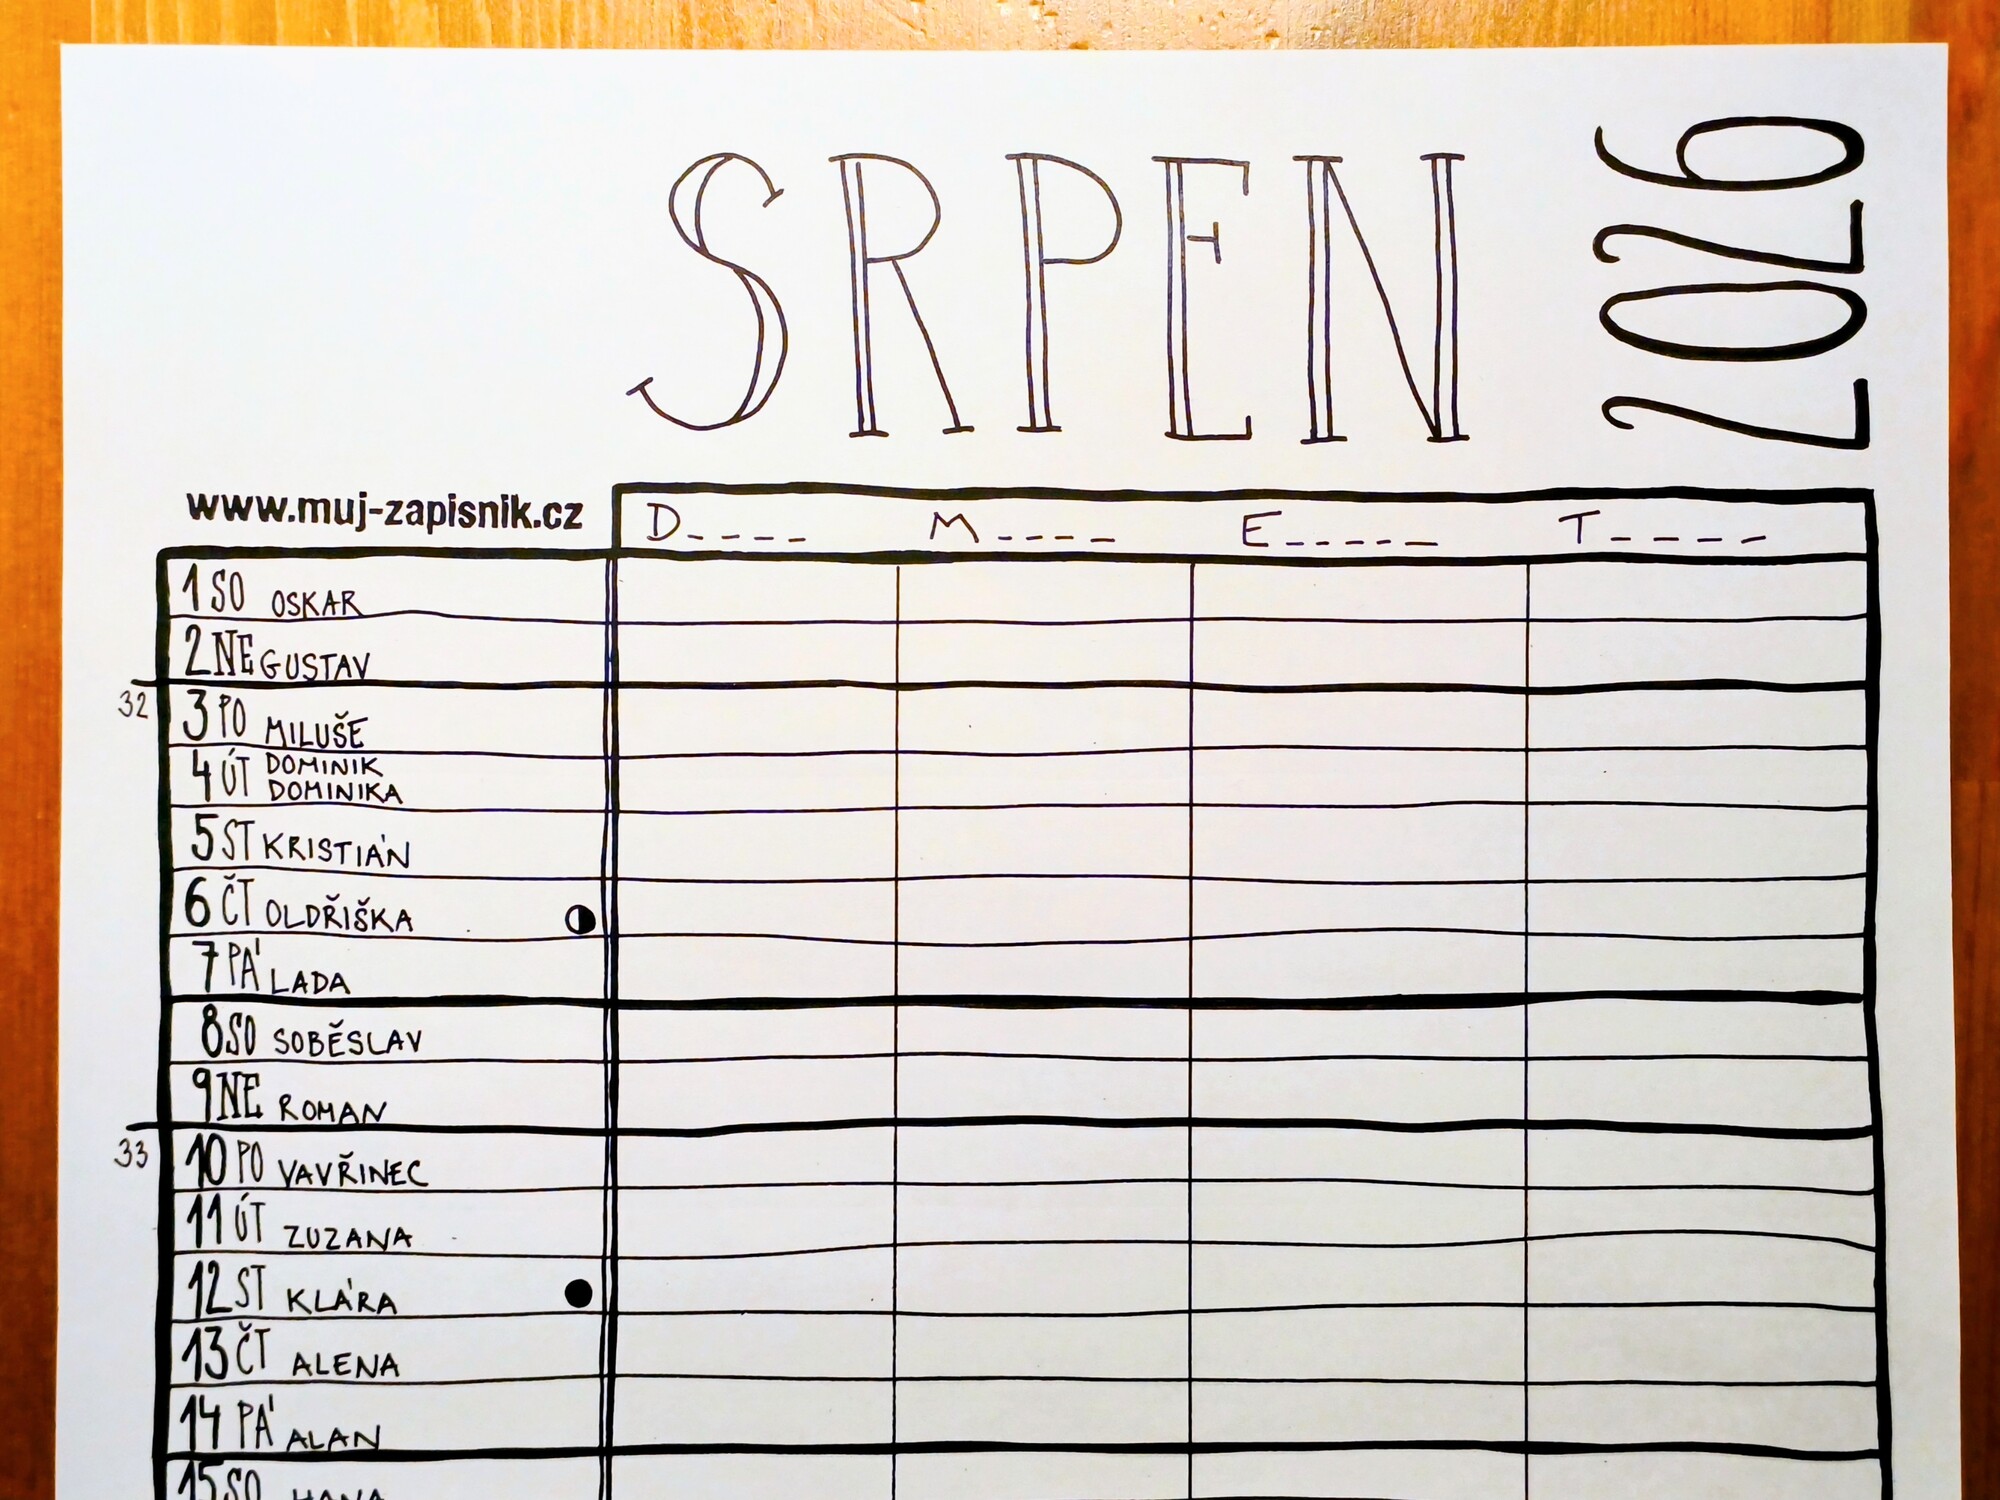 SRPEN
2026
www.muj-zapisnik.cz
D____ M____ E_____ T____
1 SO OSKAR
2 NE GUSTAV
32
3 PO MILUŠE
4 ÚT DOMINIK
DOMINIKA
5 ST KRISTIÁN
6 ČT OLDŘIŠKA
7 PÁ LADA
8 SO SOBĚSLAV
9 NE ROMAN
33
10 PO VAVŘINEC
11 ÚT ZUZANA
12 ST KLÁRA
13 ČT ALENA
14 PÁ ALAN
15 SO HANA